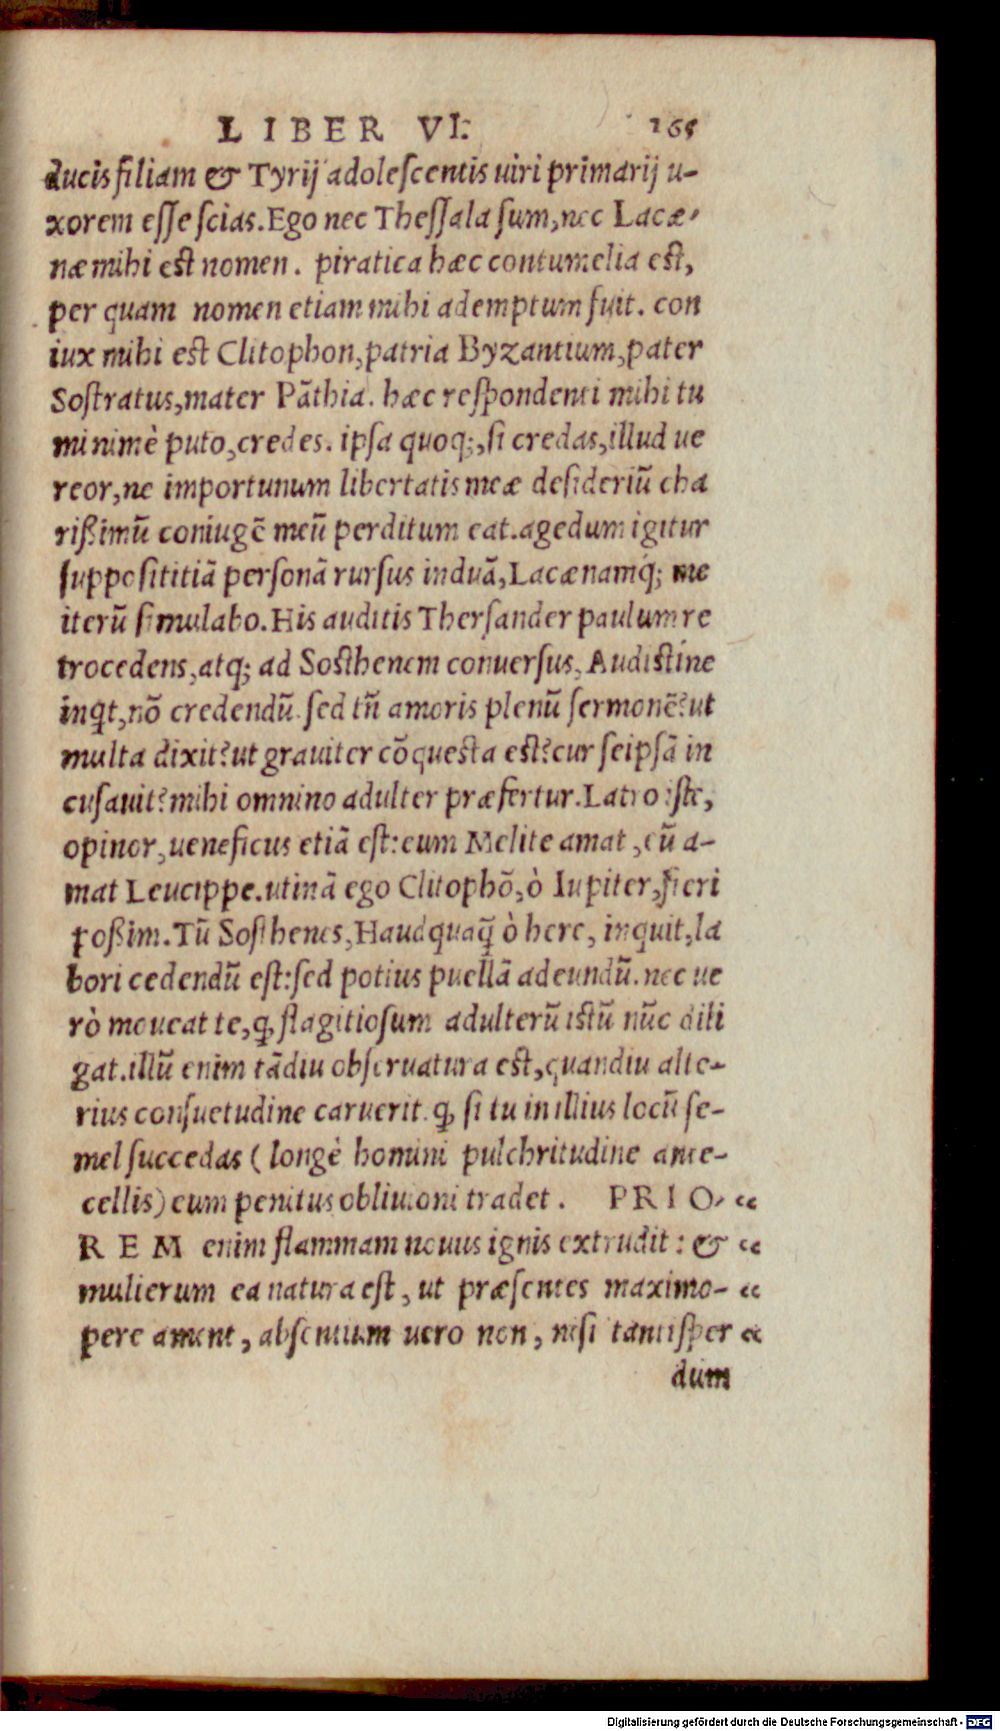 LIBER VI. 165
ducis filiam & Tyrij adolescentis uiri primarij u-
xorem esse scias. Ego nec Thessala sum, nec Lacæ-
næ mihi est nomen. piratica hæc contumelia est,
per quam nomen etiam mihi ademptum fuit. con
iux mihi est Clitophon, patria Byzantium, pater
Sostratus, mater Pãthia. hæc respondenti mihi tu
minimè puto, credes. ipsa quoq;, si credas, illud ue
reor, ne importunum libertatis meæ desideriũ cha
rißimũ coniugẽ meũ perditum eat. agedum igitur
supposititiã personã rursus induã, Lacænamq́; me
iterũ simulabo. His auditis Thersander paulum re
trocedens, atq; ad Sosthenem conuersus, Audistine
inqt, nõ credendũ. sed tñ amoris plenũ sermonẽ? ut
multa dixit? ut grauiter cõquesta est? cur seipsã in
cusauit? mihi omnino adulter præfertur. Latro iste,
opinor, ueneficus etiã est: eum Melite amat, eũ a-
mat Leucippe. utinã ego Clitophõ, ò Iupiter, fieri
poßim. Tũ Sosthenes, Haudquaq̃ ò here, inquit, la
bori cedendũ est: sed potius puellã adeundũ. nec ue
rò moueat te, ꝙ flagitiosum adulterũ istũ nũc dili
gat. illũ enim tãdiu obseruatura est, quandiu alte-
rius consuetudine caruerit. ꝙ si tu in illius locũ se-
mel succedas (longè homini pulchritudine ante-
cellis) eum penitus obliuioni tradet. PRIO- “
REM enim flammam nouus ignis extrudit: & “
mulierum ea natura est, ut præsentes maximo- “
pere ament, absentium uero non, nisi tantisper “
dum
Digitalisierung gefördert durch die Deutsche Forschungsgemeinschaft - DFG